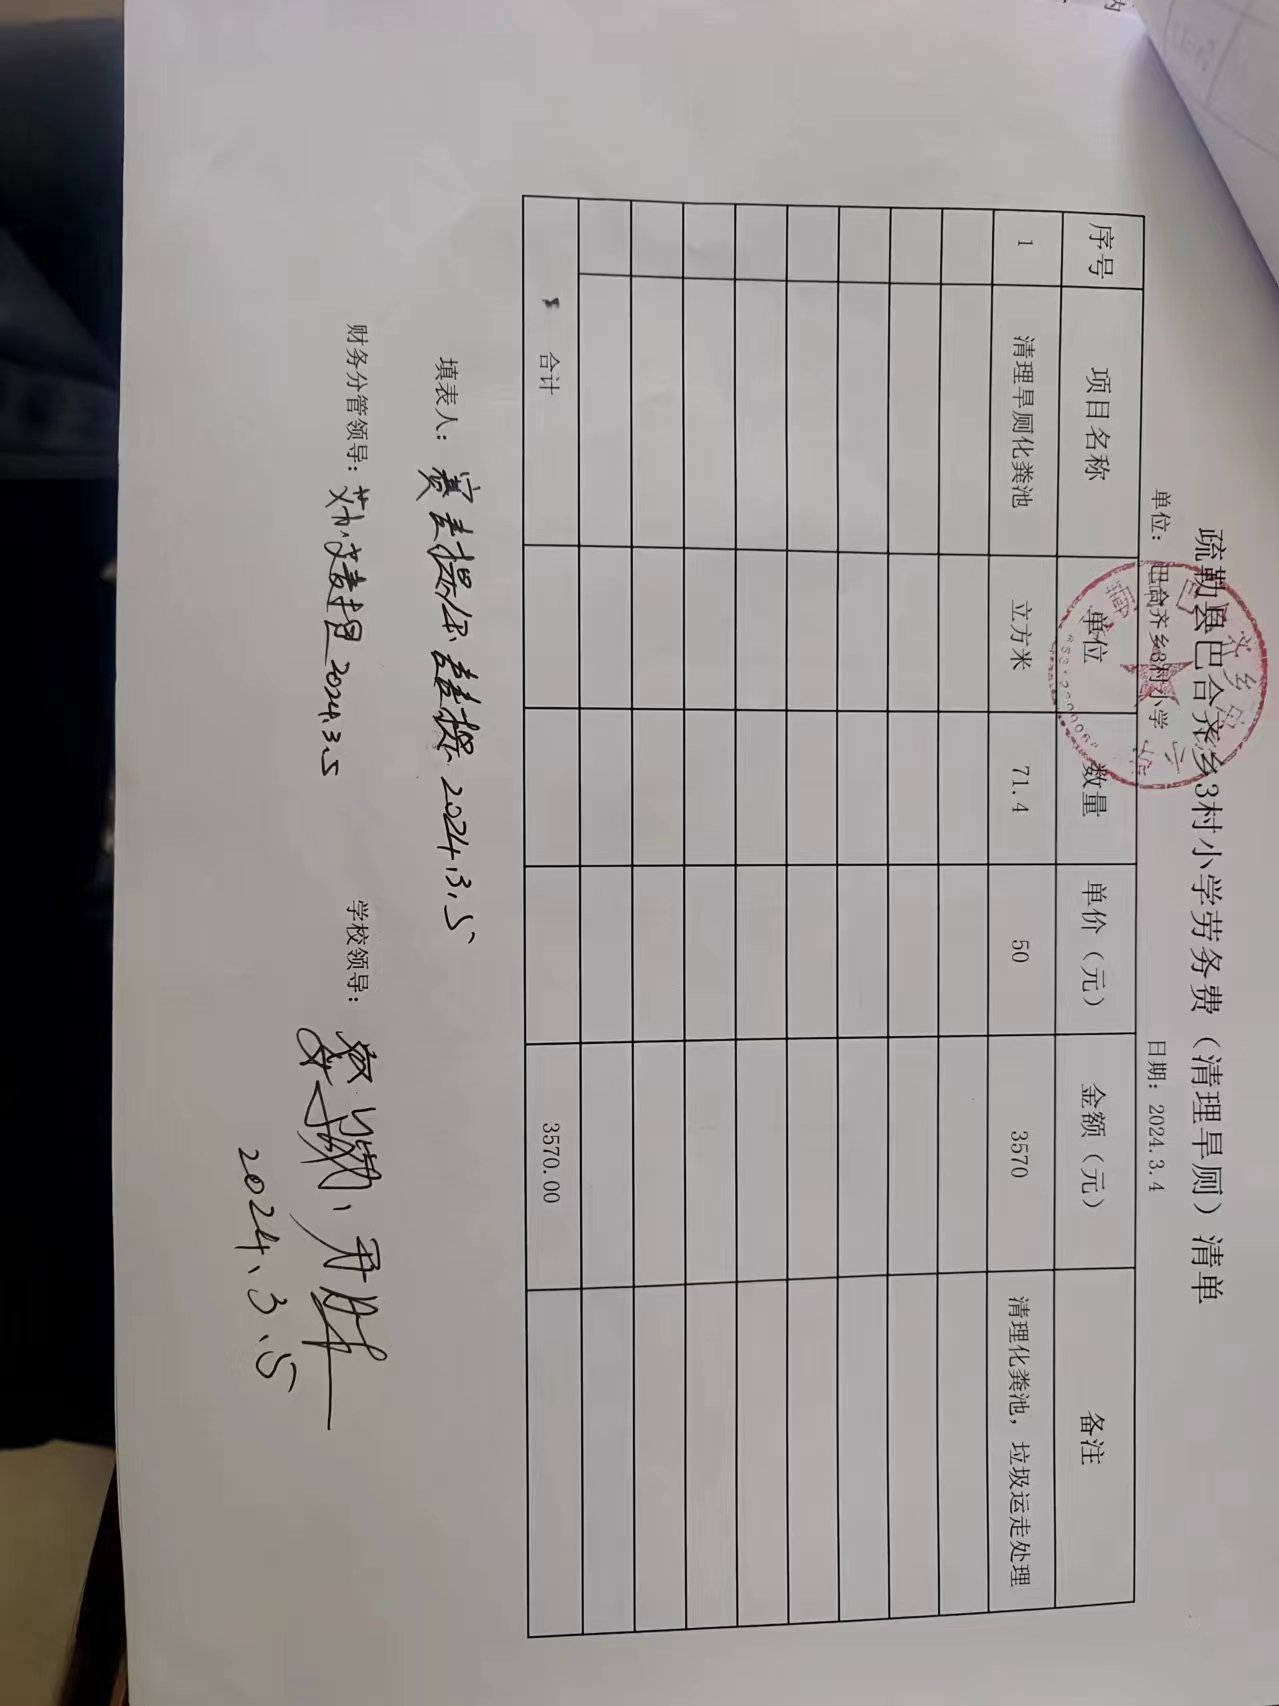 疏勒县巴合齐乡3村小学劳务费（清理旱厕）清单
单位：巴合齐乡3村小学 日期：2024.3.4
序号 项目名称 单位 数量 单价（元） 金额（元） 备注
1 清理旱厕化粪池 立方米 71.4 50 3570 清理化粪池，垃圾运走处理
合计 3570.00
填表人： 2024.3.5
财务分管领导： 2024.3.5 学校领导：
2024.3.5